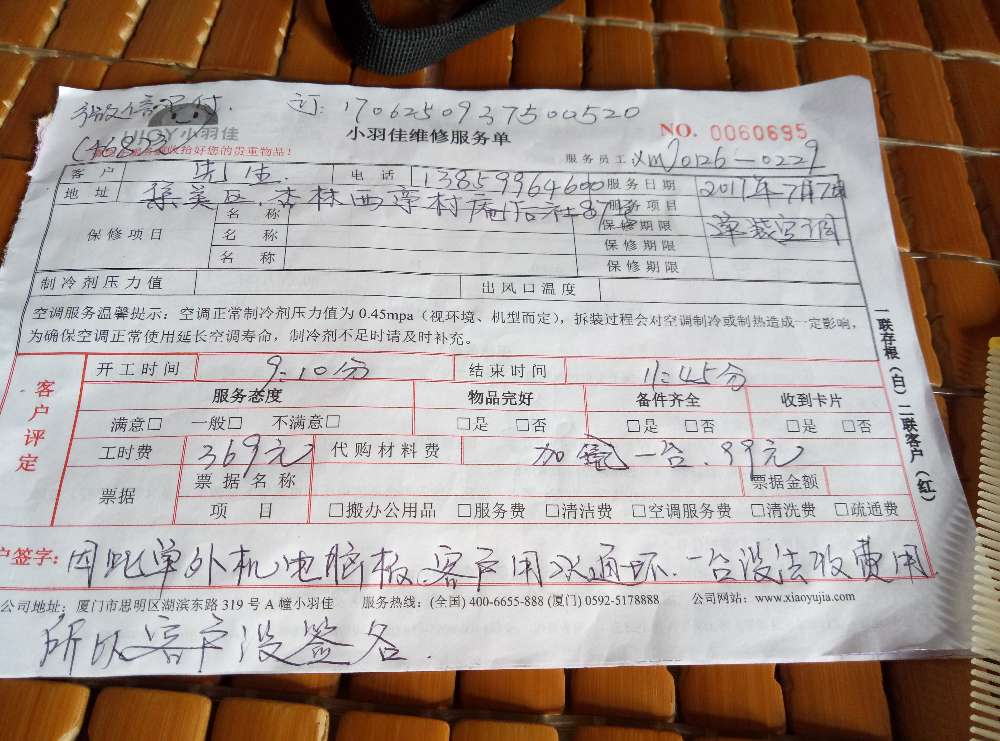 微信已付. 订: 170625093 7500520
(468元)
XIOY 小羽佳
小羽佳维修服务单
NO. 0060695
收拾好您的贵重物品!
服务员工 XM20126-0229
客户 先生 电话 13859964600 服务日期 2017年7月7日
地址 集美区.杏林西亭村庵后社87号 服务项目 单装空调
保修项目 名称 保修期限
名称 保修期限
名称 保修期限
制冷剂压力值 出风口温度
空调服务温馨提示:空调正常制冷剂压力值为0.45mpa(视环境、机型而定),拆装过程会对空调制冷或制热造成一定影响,
为确保空调正常使用延长空调寿命,制冷剂不足时请及时补充。
客户评定
开工时间 9:10分 结束时间 11:45分
服务态度 物品完好 备件齐全 收到卡片
满意□ 一般□ 不满意□ □是 □否 □是 □否 □是 □否
工时费 369元 代购材料费 加氟一台.99元
票据 票据名称 票据金额
项目 □搬办公用品 □服务费 □清洁费 □空调服务费 □清洗费 □疏通费
户签字: 因此单外机电脑板客户用次通坏.一台没法收费用
公司地址:厦门市思明区湖滨东路319号A幢小羽佳 服务热线:(全国)400-6655-888 (厦门)0592-5178888 公司网站:www.xiaoyujia.com
所以客户没签名.
一联存根(白)二联客户(红)